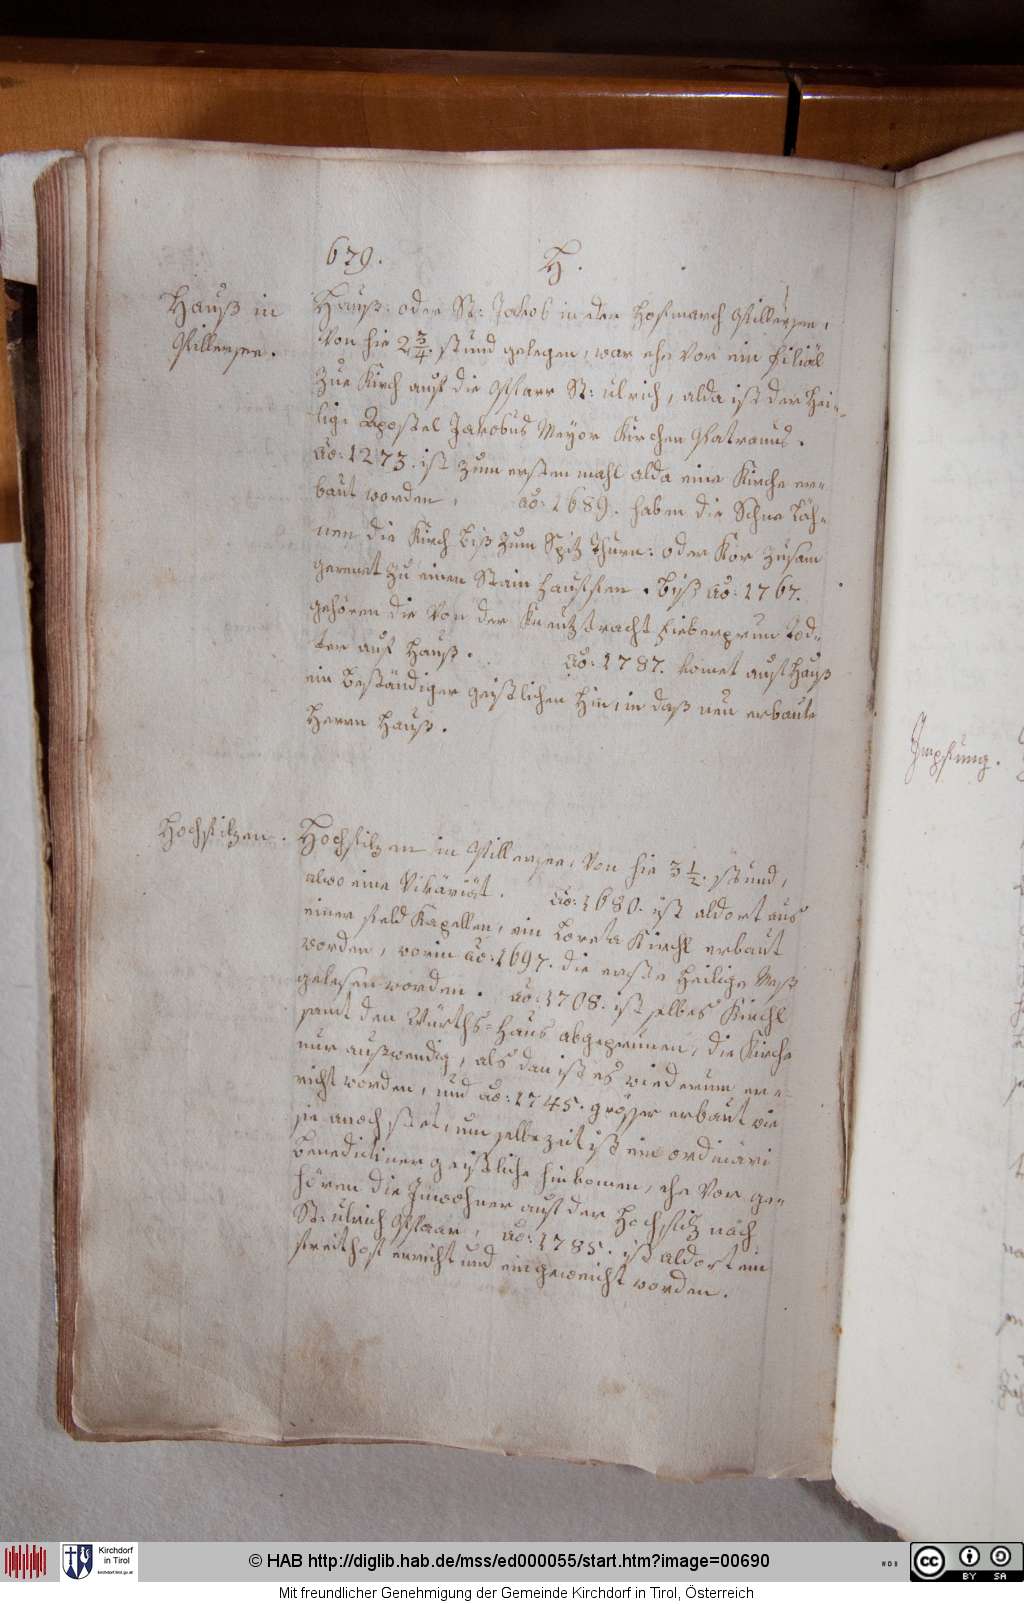 679. H.
Hauß in
Pillersee.
Hauß: oder St: Jakob in der Hofmarch Pillersee,
Von hie 2 3/4. stund gelegen, war ehe Vor ein filial
Zue Kirch auf die Pfarr St: ulrich, alda ist der Hei=
lige Apostel Jakobus Meyor Kirchen Patranus.
ao: 1273. ist zum ersten mahl alda eine Kirche er=
baut worden, ao: 1689. haben die Schne Läh=
nen die Kirch biß zum Spitz Thurn: oder Kor zusam
gerent zu einen Stain hauffen. biß ao: 1767.
gehören die Von der Kreutztracht fieberprun Tod=
ten auf Hauß. ao: 1787. komet auf Hauß
ein beständiger geistlichen hin, in daß neu erbaute
Herrn Hauß.
Hochfilzen.
Hochfilzen in Pillersee, Von hie 3 1/2. stund,
alwo eine Vikäriät. ao: 1680. ist aldort aus
einer feld Kapellen, ein Loreta Kirchl erbaut
worden, worin ao: 1697. die erste Heilige Meß
gelesen worden. ao: 1708. ist selbes Kirchl
samt den Würths=Haus abgeprunen, die Kirche
nur außwendig, als dan ist es wiederum er=
richt worden, und ao: 1745. grösser erbaut wie
sie anoch stet, um selbe zeit ist ein ordinäri
Benedictiner geistliche hinkomen, ehe Vor ge=
hören die Inwohner auf der Hochfilz nach
St: ulrich Pfaar, ao: 1785. ist aldort ein
freithof erricht und eingeweicht worden.
Impfung.
Kirchdorf
in Tirol
kirchdorf.tirol.gv.at
© HAB http://diglib.hab.de/mss/ed000055/start.htm?image=00690
WDB
cc BY SA
Mit freundlicher Genehmigung der Gemeinde Kirchdorf in Tirol, Österreich